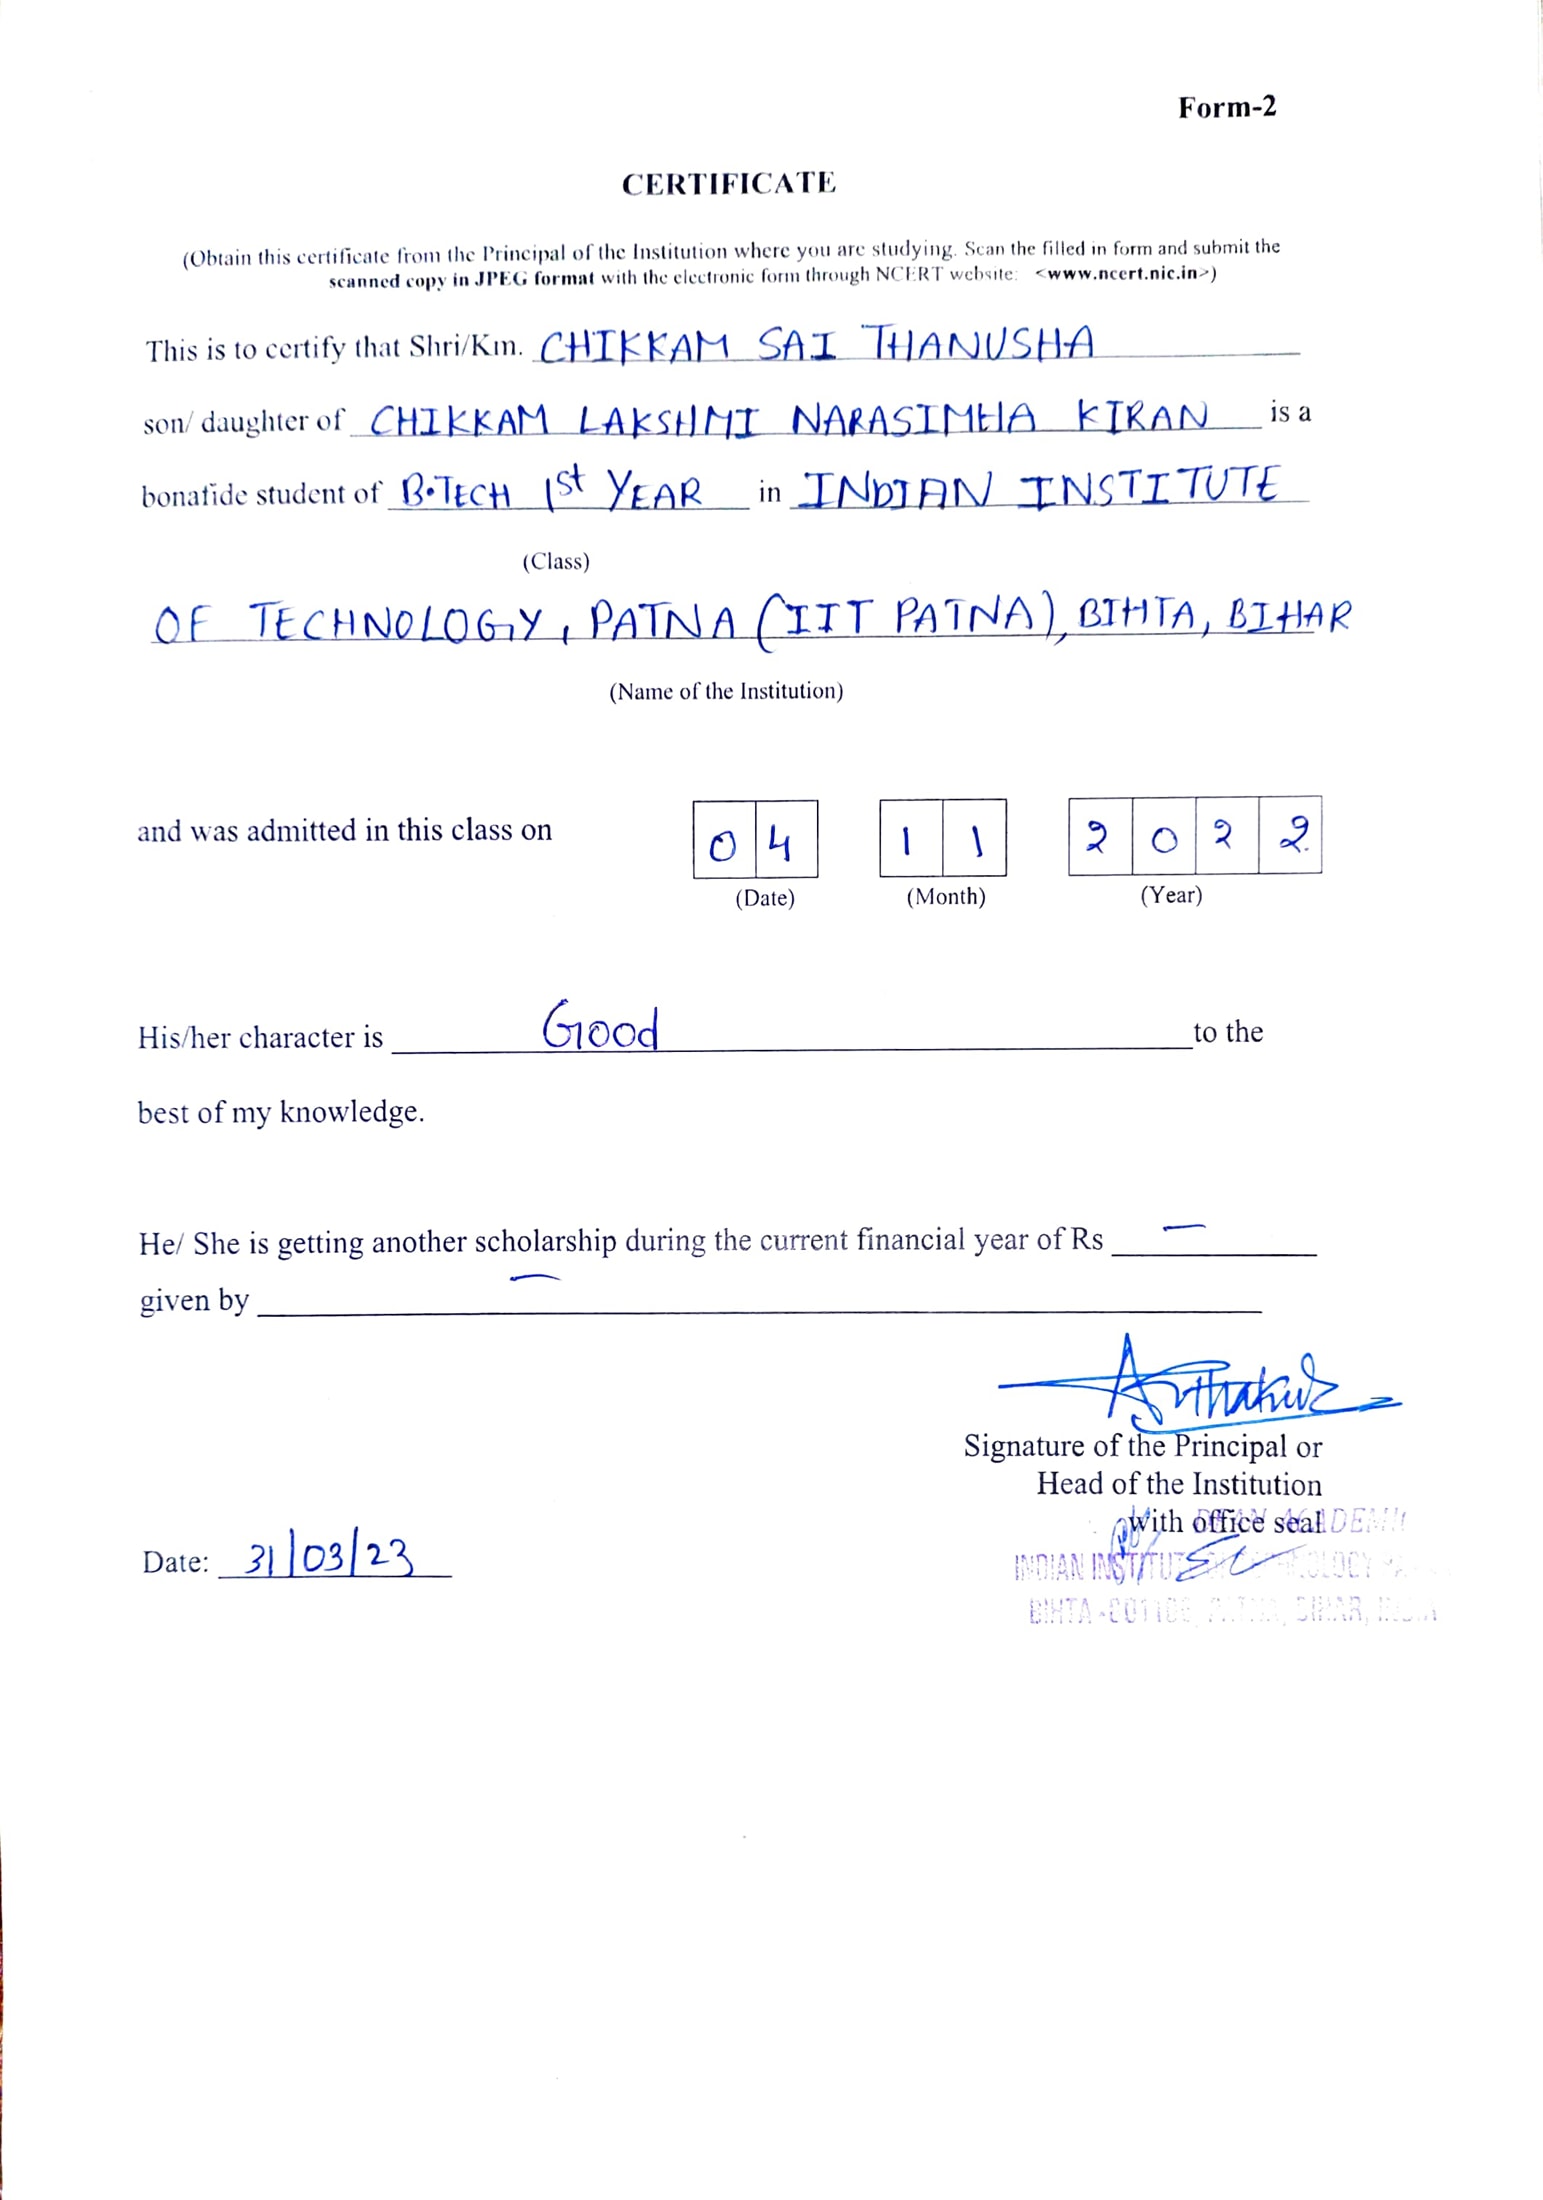 Form-2
CERTIFICATE
(Obtain this certificate from the Principal of the Institution where you are studying. Scan the filled in form and submit the
scanned copy in JPEG format with the electronic form through NCERT website: <www.ncert.nic.in>)
This is to certify that Shri/Km. CHIKKAM SAI THANUSHA
son/ daughter of CHIKKAM LAKSHMI NARASIMHA KIRAN is a
bonafide student of B.TECH 1st YEAR in INDIAN INSTITUTE
(Class)
OF TECHNOLOGY, PATNA (IIT PATNA), BIHTA, BIHAR
(Name of the Institution)
and was admitted in this class on 04 11 2022
(Date) (Month) (Year)
His/her character is Good to the
best of my knowledge.
He/ She is getting another scholarship during the current financial year of Rs —
given by —
Signature of the Principal or
Head of the Institution
with office seal
Date: 31/03/23
INDIAN INSTITUTE
BIHTA